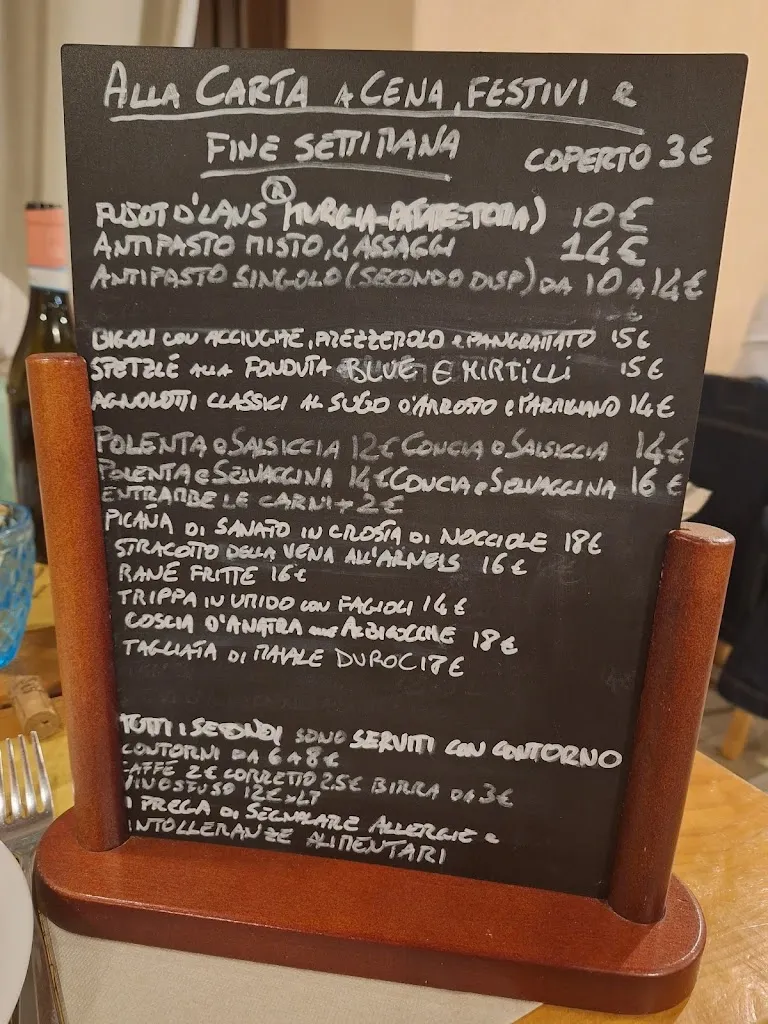 ALLA CARTA A CENA, FESTIVI e
FINE SETTIMANA COPERTO 3€
FUSOT D'LANS (MURGIA-PATATE-TOMA) 10€
ANTIPASTO MISTO, 4 ASSAGGI 14€
ANTIPASTO SINGOLO (SECONDO DISP) DA 10 A 14€
BIGOLI CON ACCIUGHE, PREZZEROLO e PANGRATTATO 15€
SPETZLÉ ALLA FONDUTA BLUE E MIRTILLI 15€
AGNOLOTTI CLASSICI AL SUGO D'ARROSTO e PARMIGIANO 14€
POLENTA e SALSICCIA 12€ CONCIA e SALSICCIA 14€
POLENTA e SELVAGGINA 14€ CONCIA e SELVAGGINA 16€
ENTRAMBE LE CARNI + 2€
PICAÑA DI SANATO IN CROSTA DI NOCCIOLE 18€
STRACOTTO DELLA VENA ALL'ARNEIS 16€
RANE FRITTE 16€
TRIPPA IN UMIDO CON FAGIOLI 14€
COSCIA D'ANATRA ALBICOCCHE 18€
TAGLIATA DI MAIALE DUROC 17€
TUTTI I SECONDI SONO SERVITI CON CONTORNO
CONTORNI DA 6 A 8€
CAFFÈ 2€ CORRETTO 2.5€ BIRRA DA 3€
VINO SFUSO 12€ x LT
I PREGA DI SEGNALARE ALLERGIE e
INTOLLERANZE ALIMENTARI